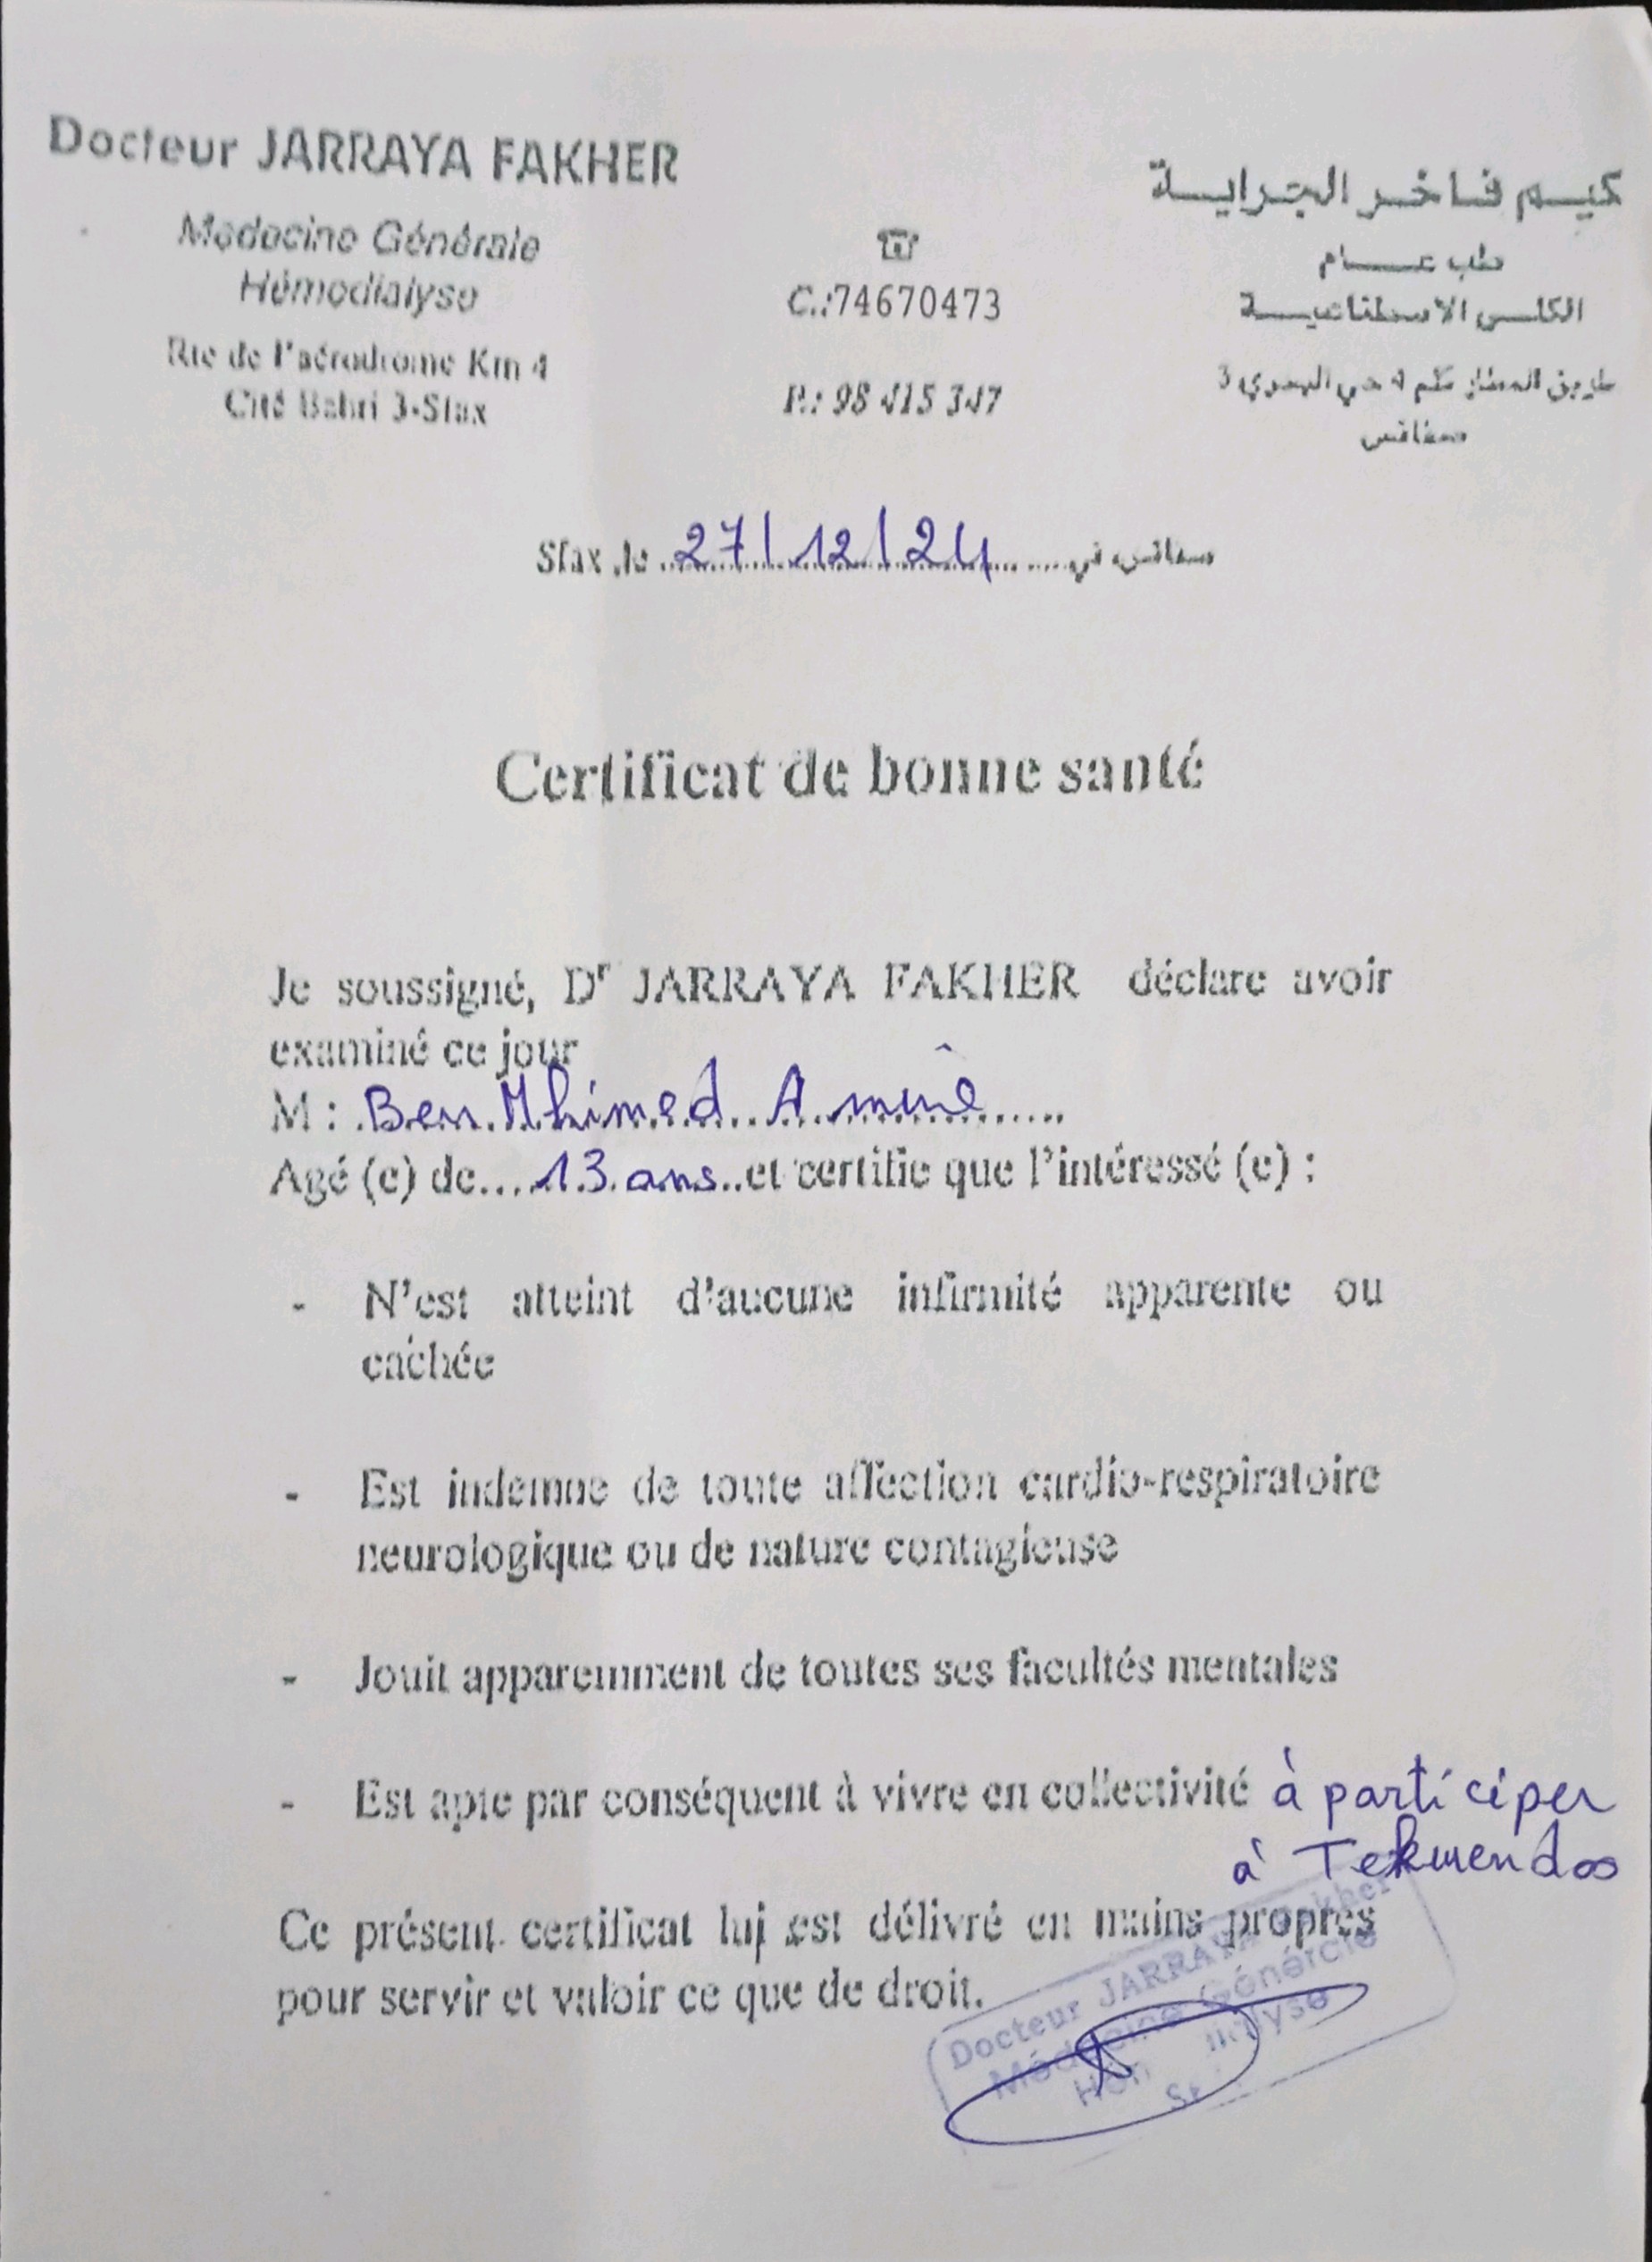 Docteur JARRAYA FAKHER
Médecine Générale
Hémodialyse
Rte de l'aérodrome Km 4
Cité Bahri 3-Sfax
☏
C.:74670473
P.: 98 415 347
كيم فاخر الجراية
طب عام
الكلى الاصطناعية
طريق المطار كلم 4 حي البحري 3
صفاقس
Sfax ,le 27/12/24 صفاقس في
Certificat de bonne santé
Je soussigné, Dr JARRAYA FAKHER déclare avoir
examiné ce jour
M : Ben Mhimed Amine
Agé (e) de 13 ans et certifie que l'intéressé (e) :
- N'est atteint d'aucune infirmité apparente ou
cachée
- Est indemne de toute affection cardio-respiratoire
neurologique ou de nature contagieuse
- Jouit apparemment de toutes ses facultés mentales
- Est apte par conséquent à vivre en collectivité à participer
à Tekwendoo
Ce présent certificat lui est délivré en mains propres
pour servir et valoir ce que de droit.
Docteur JARRAYA Fakher
Médecine Générale